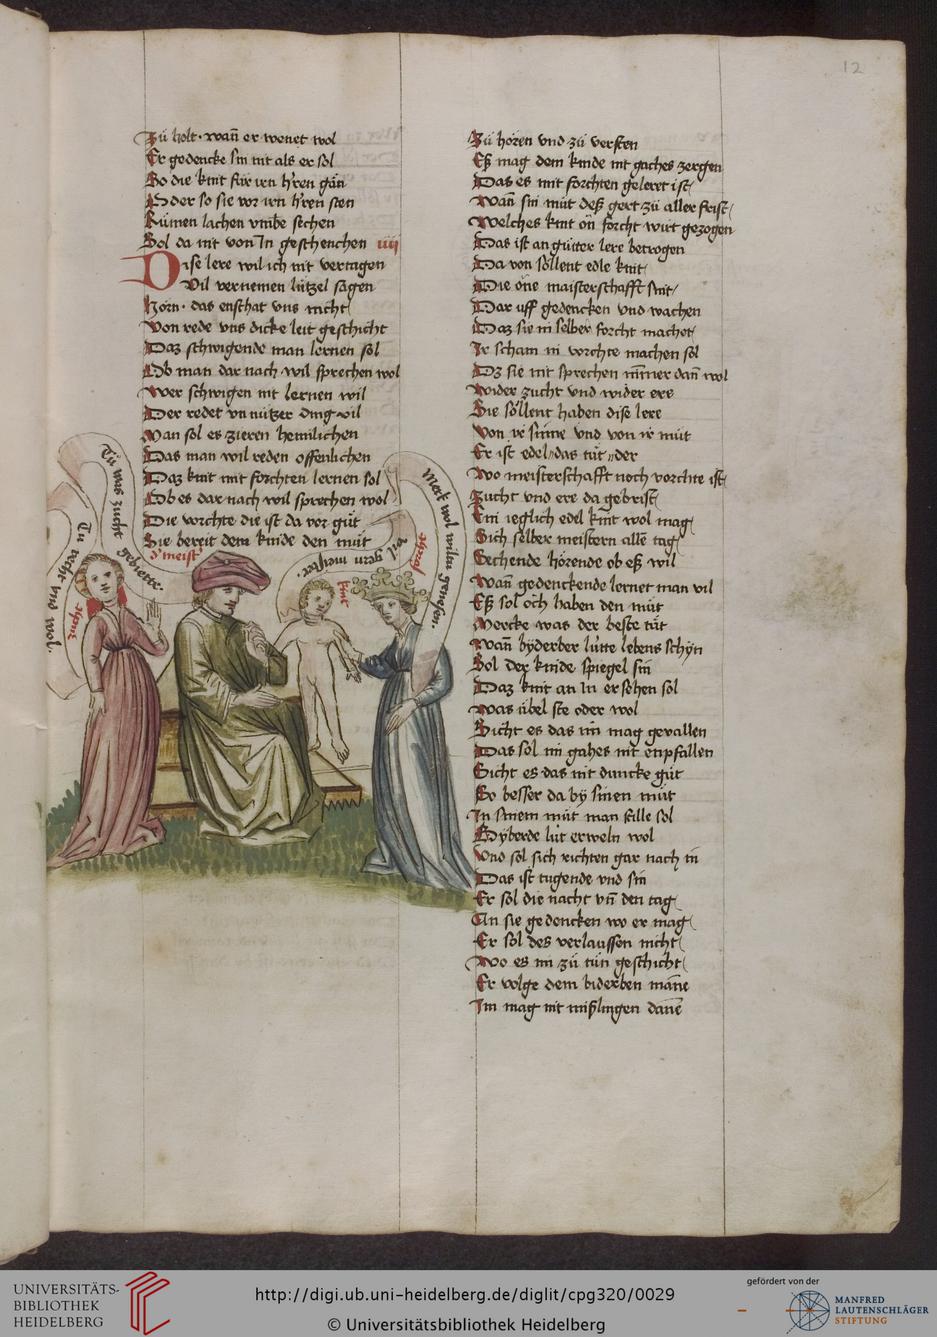 12
Zů holt · wañ er wenet wol
Er gedencke sin nit als er sol
So die kint für irn h'ren gän
Oder so sie vor irn h'ren sten
Rumen lachen vmbe sechen
Sol da nit von In geschenchen iiij
Dise lere wil ich nit vertagen
Vil vernemen lützel sagen
Hörn · das enschat vns nicht
Von rede vns dicke leit geschicht
Daz schwigende man lernen sol
Ob man dar nach wil sprechen wol
Wer schwigen nit lernen wil
Der redet vnnützer ding vil
Man sol es zieren heimlichen
Das man wil reden offenlichen
Daz kint mit forchten lernen sol
Ob es dar nach wil sprechen wol
Die vorchte die ist da vor gůt
Sie bereit dem kinde den můt
Tů was zucht gebiette.
Tů recht vnd wol.
d' meist'
kint
vil gern meister.
Merck wol wiltu genesen.
Zů hören vnd zů versten
Eß mag dem kinde nit gaches zergen
Das es mit forchten geleret ist
Wañ sin můt deß gert zů aller frist
Welches kint ön forcht wirt gezogen
Das ist an gůtter lere betrogen
Da von söllent edle kint
Die öne maisterschafft sint
Dar uff gedencken vnd wachen
Daz sie in selber forcht machet
Ir scham in vorchte machen sol
Dz sie nit sprechen nimer dañ wol
Wider zucht vnd wider ere
Sie söllent haben dise lere
Von ir sinne vnd von ir můt
Er ist edel das tůt der
Wo meisterschafft noch vorchte ist
Zucht vnd ere da gebrist
Ein ieglich edel kint wol mag
Sich selber meistern alle tag
Sechende hörende ob eß wil
Wañ gedenckende lernet man vil
Eß sol och haben den můt
Mercke was der beste tůt
Wañ byderber lütte lebens schyn
Sol der kinde spiegel sin
Daz kint an in ersehen sol
Was übel ste oder wol
Sicht es das im mag gevallen
Das sol im gahes nit enpfallen
Sicht es das nit duncke gůt
So besser da by sinen můt
In sinem můt man stille sol
Byderbe lüt erweln wol
Vnd sol sich richten gar nach in
Das ist tugende vnd sin
Er sol die nacht vñ den tag
An sie gedencken wo er mag
Er sol des verlaussen nicht
Wo es im zů tün geschicht
Er volge dem biderben mane
Im mag nit mißlingen dane
UNIVERSITÄTS-
BIBLIOTHEK
HEIDELBERG
http://digi.ub.uni-heidelberg.de/diglit/cpg320/0029
© Universitätsbibliothek Heidelberg
gefördert von der
MANFRED
LAUTENSCHLÄGER
STIFTUNG